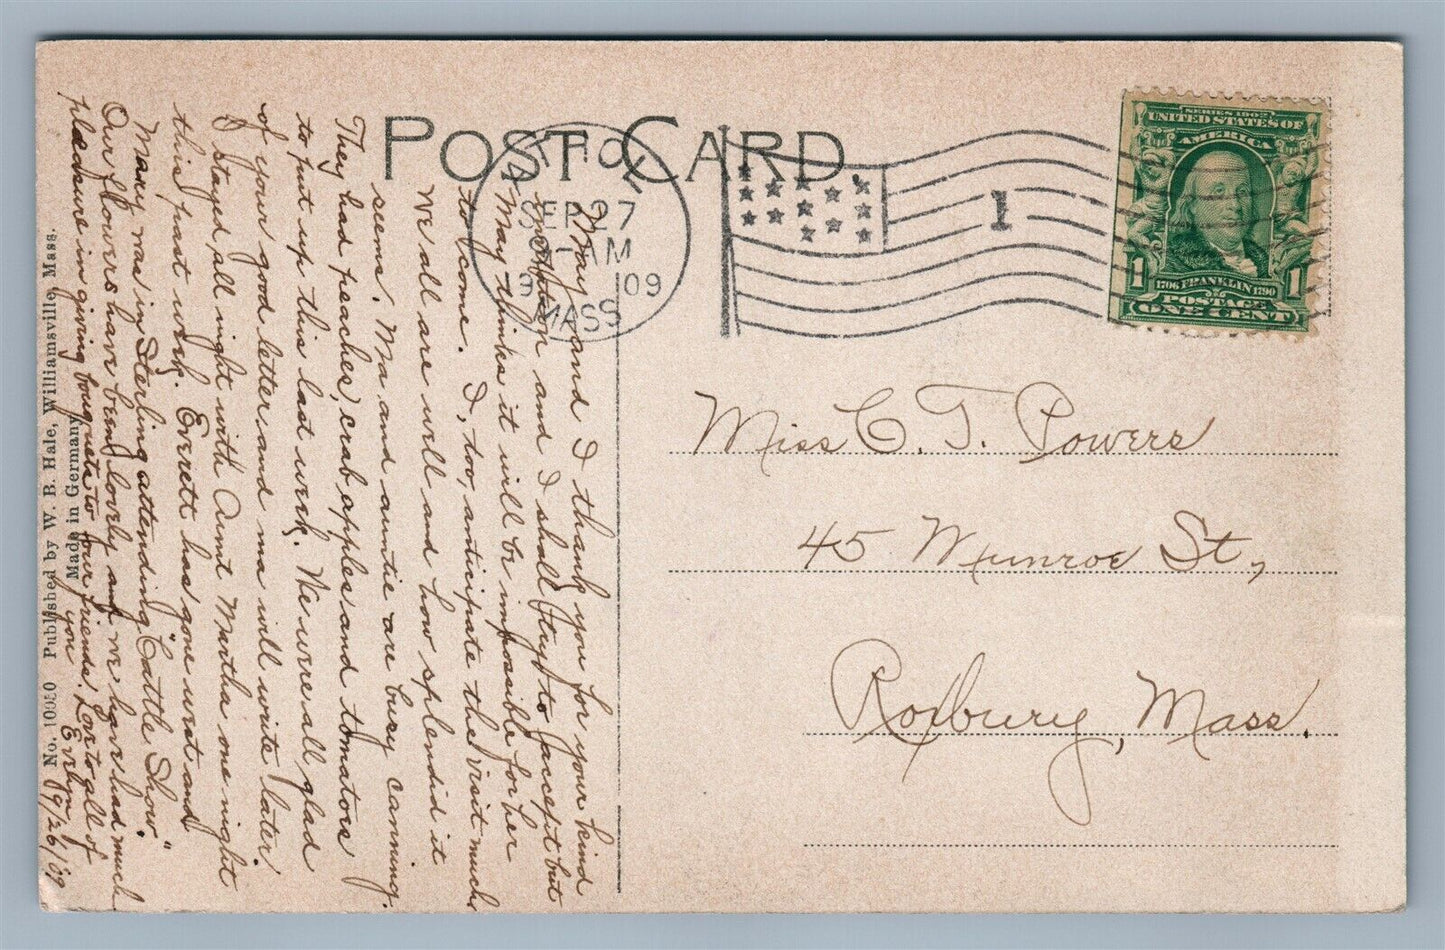 POST CARD
ATHOL
SEP 27
AM
1909
MASS
1
SERIES 1902
UNITED STATES OF
AMERICA
1 1
1706 FRANKLIN 1790
POSTAGE
ONE CENT
Miss C. T. Powers
45 Munroe St,
Roxbury, Mass.
May and I thank you for your kind
invitation and I shall try to accept but
May thinks it will be impossible for her
to come. I, too, anticipate the visit much
We all are well and how splendid it
seems. Ma and auntie are busy canning.
They had peaches, crab apples and tomatoes
to put up this last week. We were all glad
of your good letter and ma will write later.
I stayed all night with Aunt Martha one night
this past week. Everett has gone west and
Mary was in Sterling attending "Cattle Show".
Our flowers have been lovely and we have had much
pleasure in giving bouquets to our friends. Love to all of
you
Evelyn
9/26/09
No. 10050 Published by W. B. Hale, Williamsville, Mass.
Made in Germany